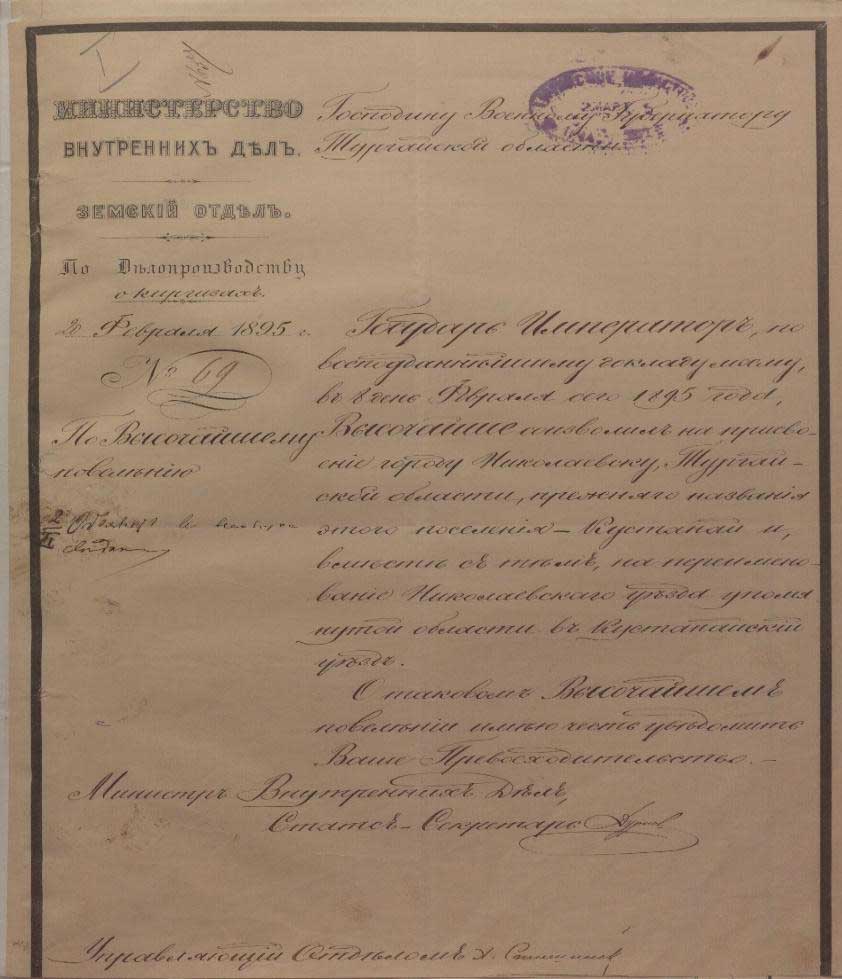 МИНИСТЕРСТВО
ВНУТРЕННИХЪ ДѢЛЪ.
ЗЕМСКІЙ ОТДѢЛЪ.
По Дѣлопроизводству
о киргизахъ.
20 Февраля 1895 г.
№ 69
По Высочайшему
повелѣнію
Господину Военному Губернатору
Тургайской области.
Государь Императоръ, по
всеподданнѣйшему докладу моему,
въ 8 день Февраля сего 1895 года,
Высочайше соизволилъ на присво-
еніе городу Николаевску, Тургай-
ской области, прежняго названія
этого поселенія – Кустанай и,
вмѣстѣ съ тѣмъ, на переимено-
ваніе Николаевскаго уѣзда упомя
нутой области въ Кустанайскій
уѣздъ.
О таковомъ Высочайшемъ
повелѣніи имѣю честь увѣдомить
Ваше Превосходительство. –
Министръ Внутреннихъ Дѣлъ,
Статсъ-Секретарь Дурново
Управляющій Отдѣломъ